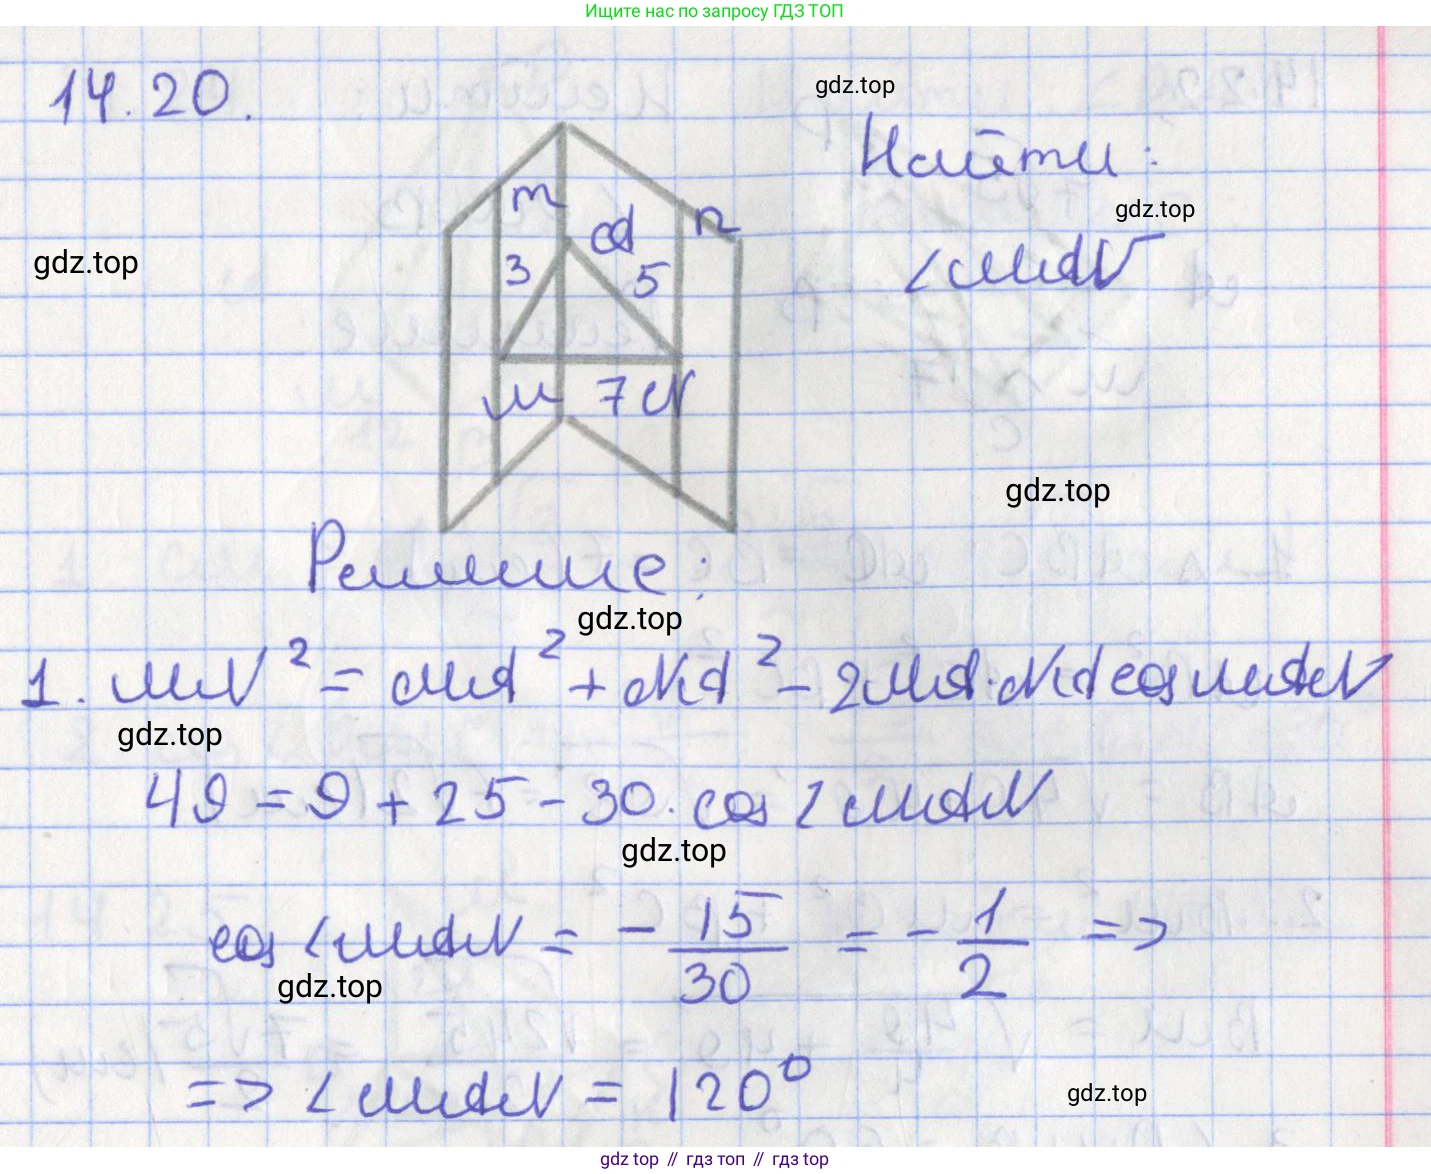 Ищите нас по запросу ГДЗ ТОП
14.20.
gdz.top
Найти:
gdz.top
∠MAN
gdz.top
m
n
A
3
5
M
7
N
gdz.top
Решение:
gdz.top
1. MN² = MA² + NA² - 2MA·NA cos MAN
gdz.top
49 = 9 + 25 - 30 · cos ∠MAN
gdz.top
cos ∠MAN = - 15/30 = - 1/2 =>
gdz.top
=> ∠MAN = 120°
gdz.top
gdz top // гдз топ // гдз top